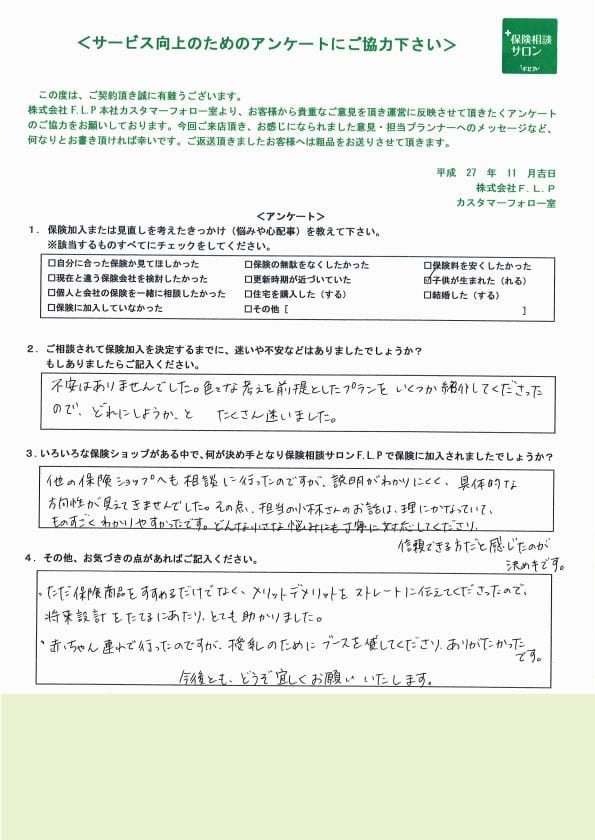 ＜サービス向上のためのアンケートにご協力下さい＞
保険相談
サロン
この度は、ご契約頂き誠に有難うございます。
株式会社F.L.P本社カスタマーフォロー室より、お客様から貴重なご意見を頂き運営に反映させて頂きたくアンケート
のご協力をお願いしております。今回ご来店頂き、お感じになられました意見・担当プランナーへのメッセージなど、
何なりとお書き頂ければ幸いです。ご返送頂きましたお客様へは粗品をお送りさせて頂きます。
平成 27 年 11 月吉日
株式会社F.L.P
カスタマーフォロー室
＜アンケート＞
1．保険加入または見直しを考えたきっかけ（悩みや心配事）を教えて下さい。
※該当するものすべてにチェックをしてください。
□自分に合った保険か見てほしかった □保険の無駄をなくしたかった □保険料を安くしたかった
□現在と違う保険会社を検討したかった □更新時期が近づいていた ☑子供が生まれた（れる）
□個人と会社の保険を一緒に相談したかった □住宅を購入した（する） □結婚した（する）
□保険に加入していなかった □その他［ ］
2．ご相談されて保険加入を決定するまでに、迷いや不安などはありましたでしょうか？
もしありましたらご記入ください。
不安はありませんでした。色々な考えを前提としたプランを いくつか紹介してくださった
ので、どれにしようか、と たくさん迷いました。
3．いろいろな保険ショップがある中で、何が決め手となり保険相談サロンF.L.Pで保険に加入されましたでしょうか？
他の保険ショップへも相談に行ったのですが、説明がわかりにくく、具体的な
方向性が見えてきませんでした。その点、担当の小林さんのお話は、理にかなっていて、
ものすごくわかりやすかったです。どんな小さな悩みにも丁寧に対応してくださり、
信頼できる方だと感じたのが
決め手です。
4．その他、お気づきの点があればご記入ください。
・ただ保険商品をすすめるだけでなく、メリットデメリットをストレートに伝えてくださったので、
将来設計をたてるにあたり、とても助かりました。
・赤ちゃん連れで行ったのですが、授乳のためにブースを催してくださり、ありがたかった
です。
今後とも、どうぞ宜しくお願いいたします。